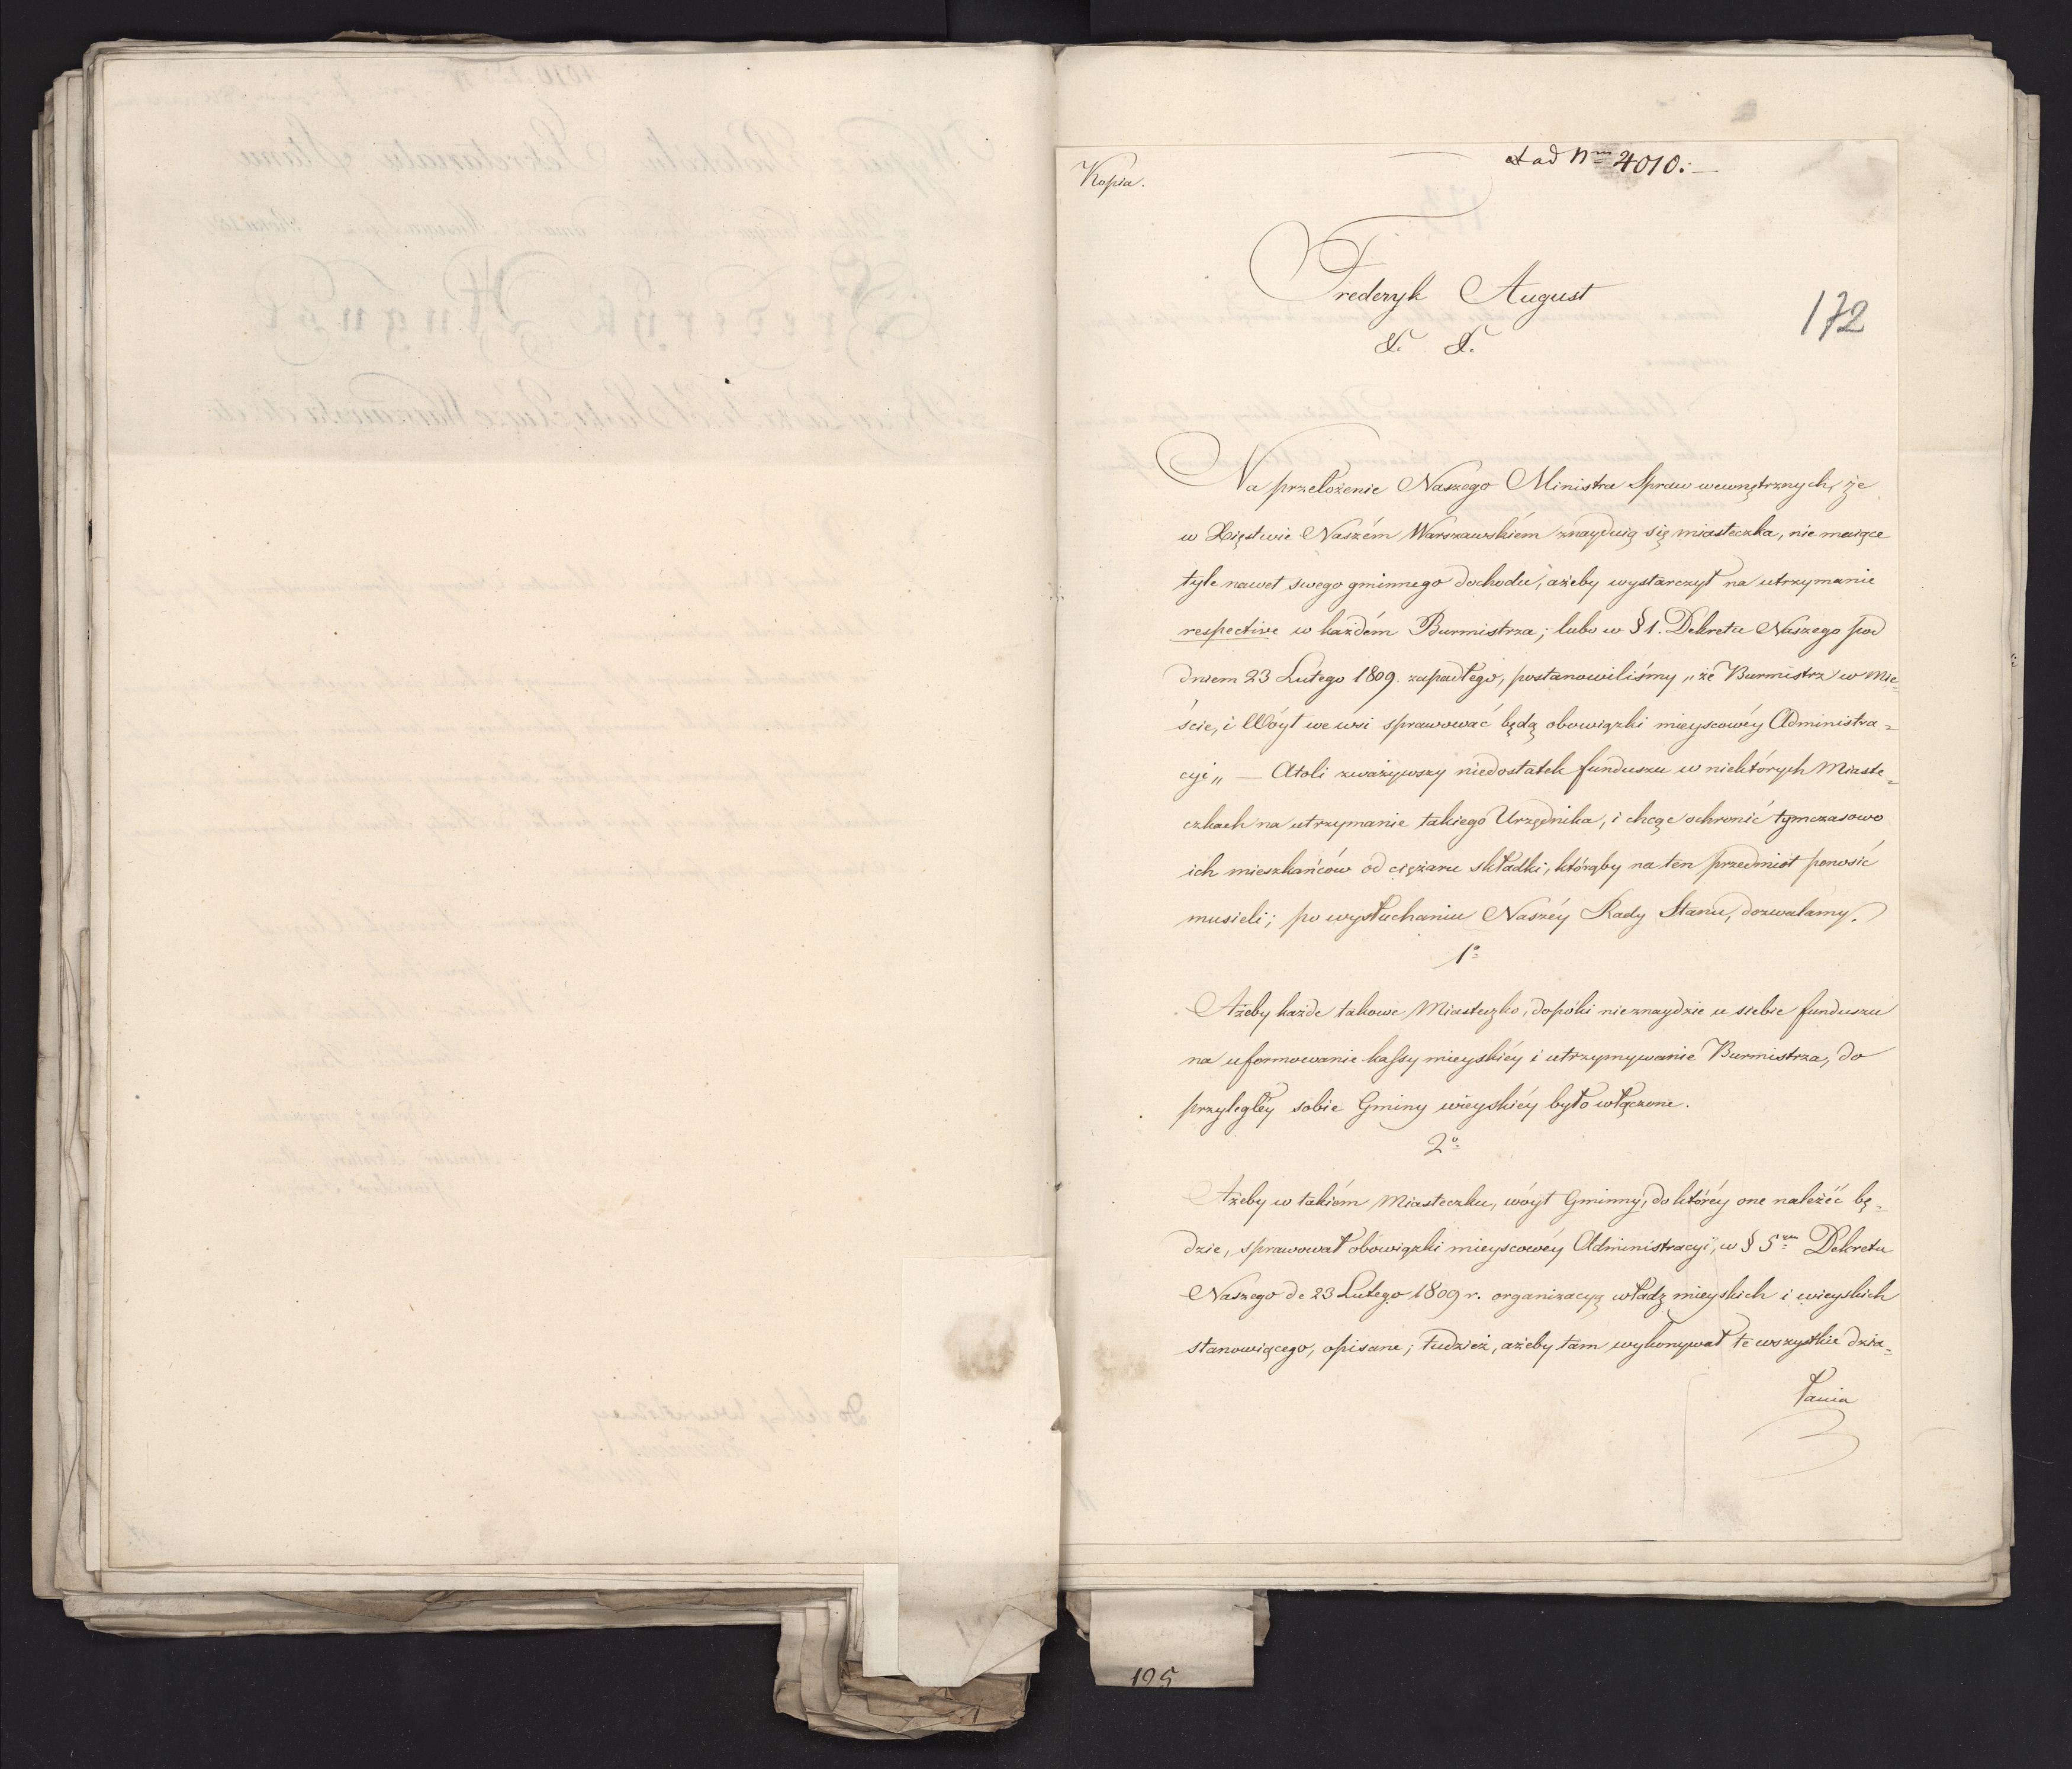 Kopia.
ad Nm 4010.
172
Frederyk August
&. &.
Na przełożenie Naszego Ministra Spraw wewnętrznych, że
w Xięstwie Naszém Warszawskiém znayduią się miasteczka, nie maiące
tyle nawet swego gminnego dochodu, ażeby wystarczył na utrzymanie
respective w każdém Burmistrza; lubo w § 1. Dekretu Naszego pod
dniem 23 Lutego 1809. zapadłego, postanowiliśmy „że Burmistrz w Mie=
ście, i Wóyt we wsi sprawować będą obowiązki mieyscowéy Administra=
cyi„ — Atoli zważywszy niedostatek funduszu w niektórych Miaste=
czkach na utrzymanie takiego Urzędnika, i chcąc ochronić tymczasowo
ich mieszkańców od ciężaru składki, którąby na ten przedmiot ponosić
musieli; po wysłuchaniu Naszéy Rady Stanu, dozwalamy.
1o
Ażeby każde takowe Miasteczko, dopóki nie znaydzie u siebie funduszu
na uformowanie kassy mieyskiéy i utrzymywanie Burmistrza, do
przyległéy sobie Gminy wieyskiéy było włączone.
2o
Ażeby w takiém Miasteczku, wóyt Gminny, do któréy one należéć bę=
dzie, sprawował obowiązki mieyscowéy Administracyi, w § 5ym Dekretu
Naszego de 23 Lutego 1809 r. organizacyą władz mieyskich i wieyskich
stanowiącego, opisane; tudzież, ażeby tam wykonywał te wszystkie dzia=
łania
195